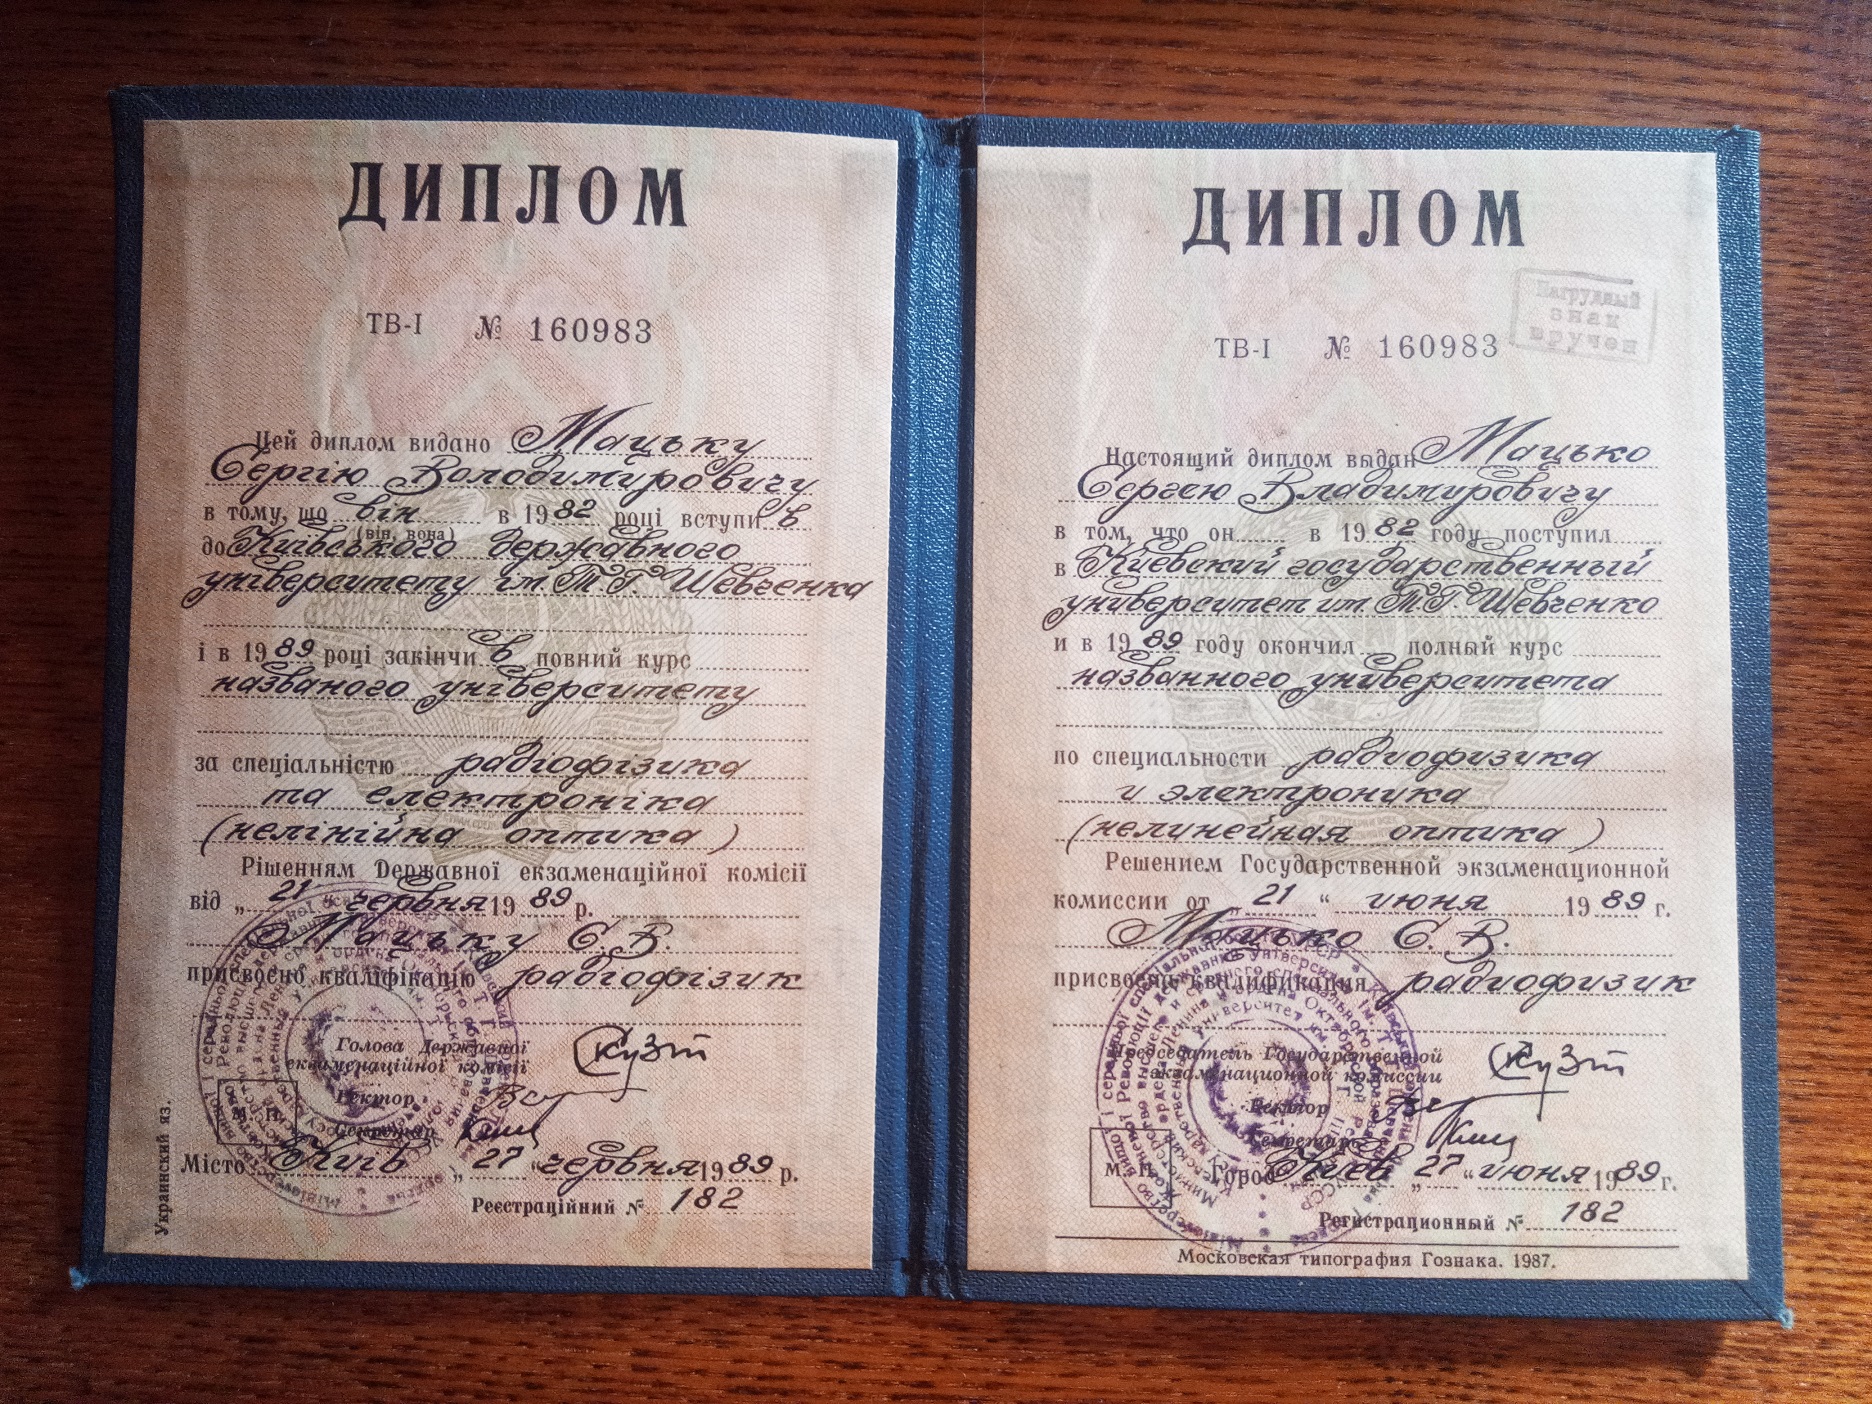 ДИПЛОМ
ТВ-І № 160983
Цей диплом видано Мацьку
Сергію Володимировичу
в тому, що він в 1982 році вступив
(він, вона)
до Київського державного
університету ім. Т. Г. Шевченка
і в 1989 році закінчив повний курс
названого університету
за спеціальністю радіофізика
та електроніка
(нелінійна оптика)
Рішенням Державної екзаменаційної комісії
від „21“ червня 1989 р.
Мацьку С. В.
присвоєно кваліфікацію радіофізик
Голова Державної
екзаменаційної комісії
Ректор
Секретар
М. П.
Місто Київ „27“ червня 1989 р.
Реєстраційний № 182
Украинский яз.
ДИПЛОМ
Нагрудный
знак
вручен
ТВ-І № 160983
Настоящий диплом выдан Мацько
Сергею Владимировичу
в том, что он в 1982 году поступил
в Киевский государственный
университет им. Т. Г. Шевченко
и в 1989 году окончил полный курс
названного университета
по специальности радиофизика
и электроника
(нелинейная оптика)
Решением Государственной экзаменационной
комиссии от „21“ июня 1989 г.
Мацько С. В.
присвоена квалификация радиофизик
Председатель Государственной
экзаменационной комиссии
Ректор
Секретарь
М. П.
Город Киев „27“ июня 1989 г.
Регистрационный № 182
Московская типография Гознака. 1987.